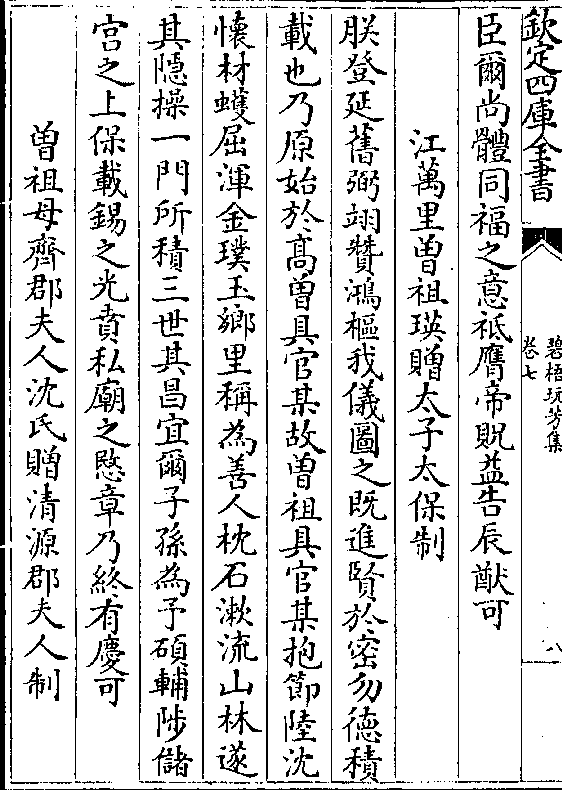 欽定四庫全書
碧梧玩芳集
卷七
八
臣爾尚體同福之意祗膺帝貺益告辰猷可
江萬里曾祖瑛贈太子太保制
朕登延舊弼翊贊鴻樞我儀圖之既進賢於密勿德積
載也乃原始於髙曾具官某故曾祖具官某抱節陸沈
懷材蠖屈渾金璞玉鄉里稱為善人枕石漱流山林遂
其隱操一門所積三世其昌宜爾子孫為予碩輔陟儲
宫之上保載錫之光賁私廟之愍章乃終有慶可
曾祖母齊郡夫人沈氏贈清源郡夫人制